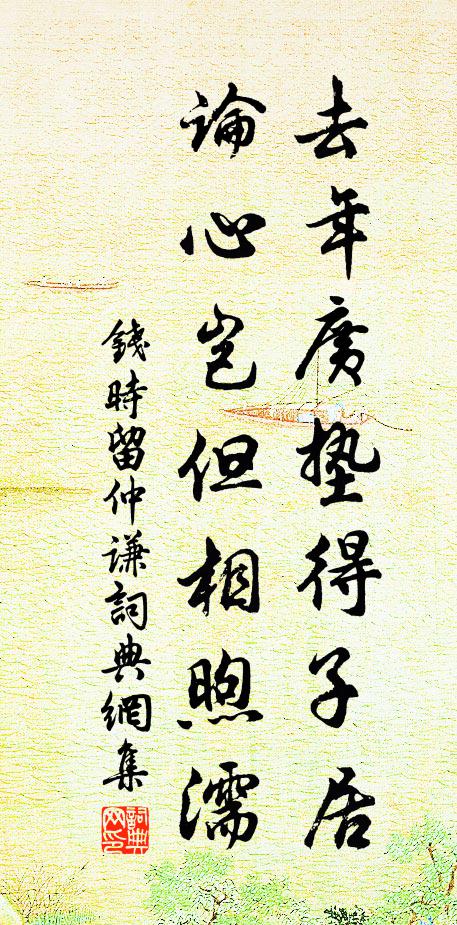 去年廣墊得子居
論心豈但相煦濡
錢時留仲謙詞典網集
詞典网印